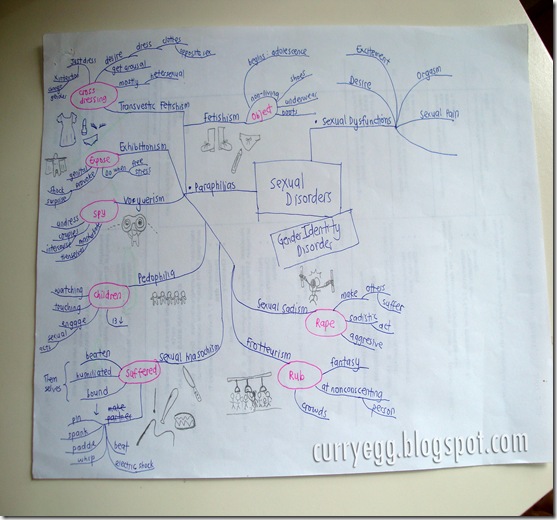 Sexual
Disorders
Gender Identity
Disorder
• Sexual Dysfunctions
Excitement
Desire
Orgasm
Sexual Pain
• Paraphilias
Fetishism
Object
begins: adolescence
non-living
shoes
underwear
boots
Transvestic Fetishism
cross
dressing
desire
dress
clothes
opposite sex
get arousal
mostly
heterosexual
Exhibitionism
Expose
genital
provoke
shock
do when
free
stress
Voyuerism
Spy
undress
couples
intercourse
masturbate
themselves
Pedophilia
children
watching
touching
engage
sexual
acts
13↓
Sexual masochism
Suffered
Them
selves
beaten
humiliated
bound
make
partner
pin
spank
paddle
whip
beat
electric shock
Frotteurism
Rub
fantasy
at nonconscenting
person
crowds
Sexual sadism
Rape
make
others
suffer
sadistic
act
aggresive
curryegg.blogspot.com